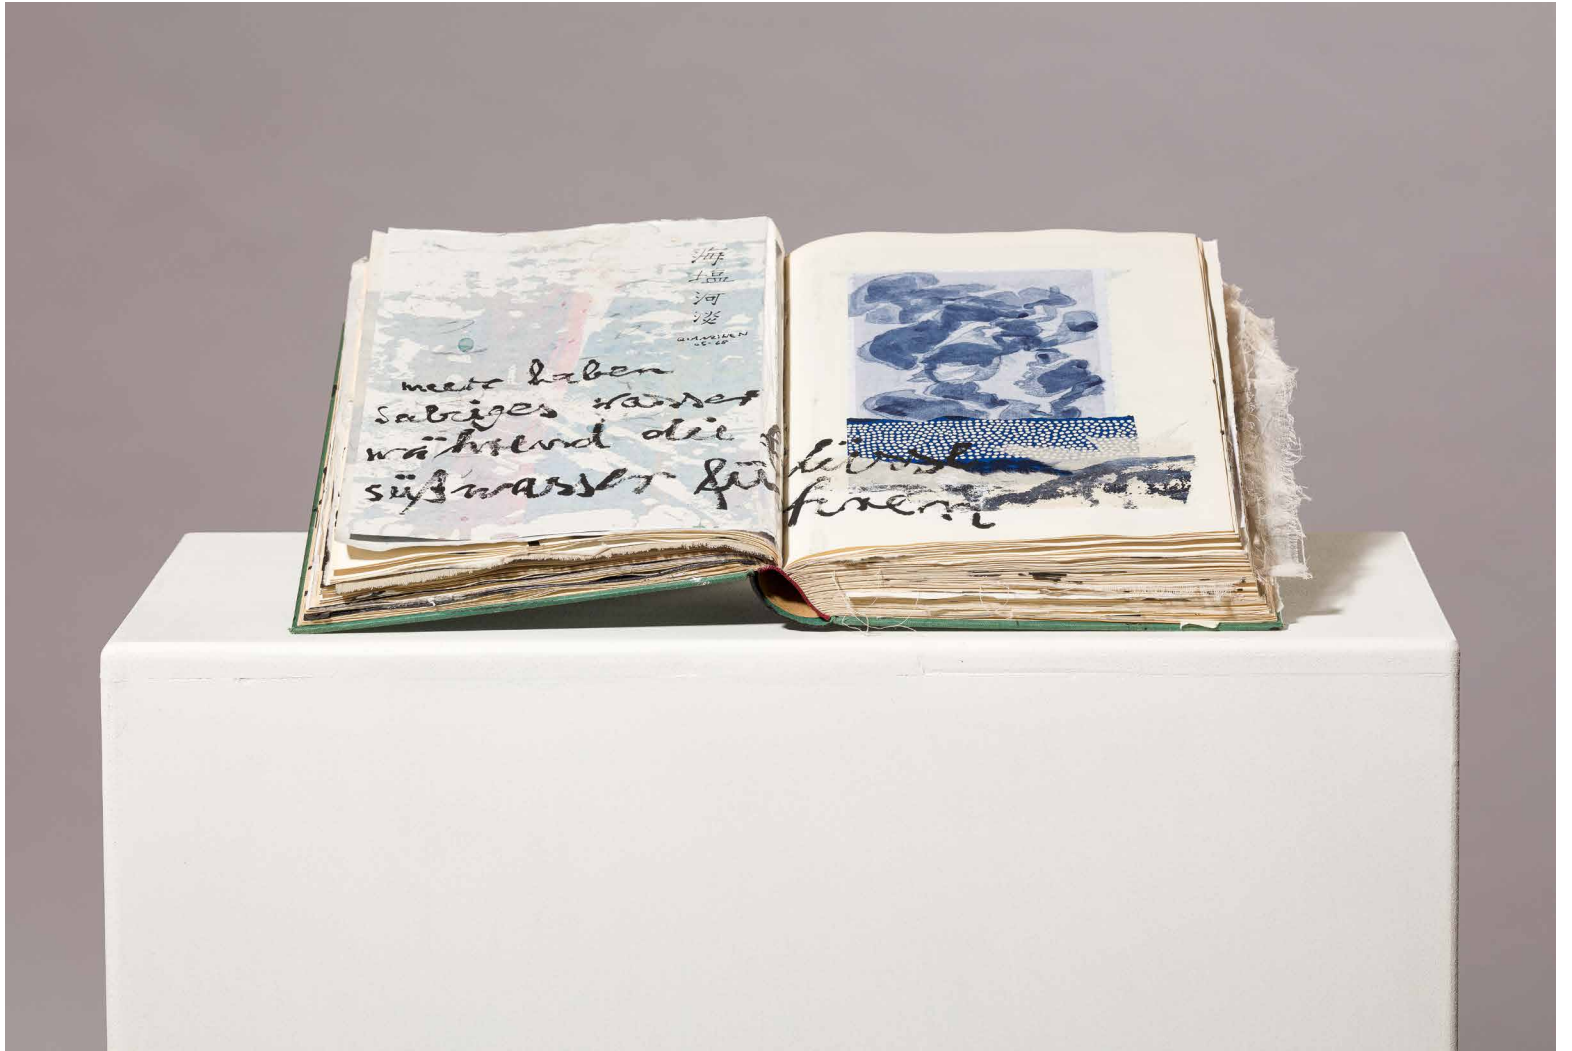 海塩河淡
QIANZIWEN
65-68
meere haben
salziges wasser
während die flüsse
süßwasser führen